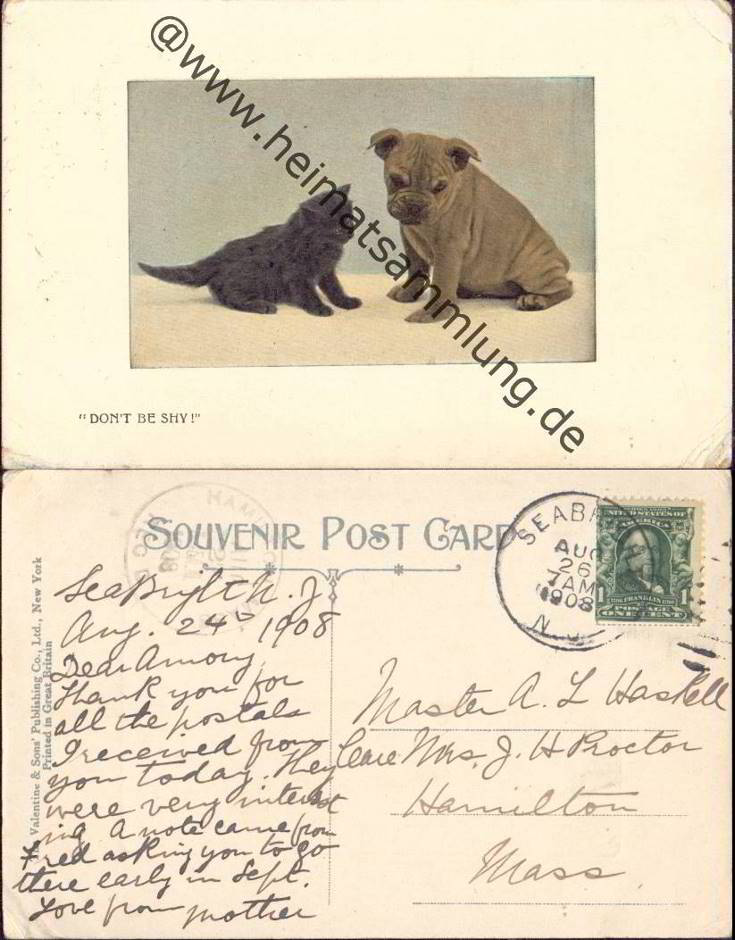 @www.heimatsammlung.de
"DON'T BE SHY!"
SOUVENIR POST CARD
SEABR
AUG
26
7AM
1908
N.J.
UNITED STATES OF
AMERICA
FRANKLIN
POSTAGE
1 ONE CENT 1
HAM
Valentine & Sons' Publishing Co., Ltd., New York
Printed in Great Britain
SeaBright N. J
Aug. 24th 1908
Dear Amory,
Thank you for
all the postals
I received from
you today. They
were very interest
ing A note came from
Fred asking you to go
there early in Sept.
Love from Mother
Master A. L Haskell
Care Mrs. J. H Proctor
Hamilton
Mass.